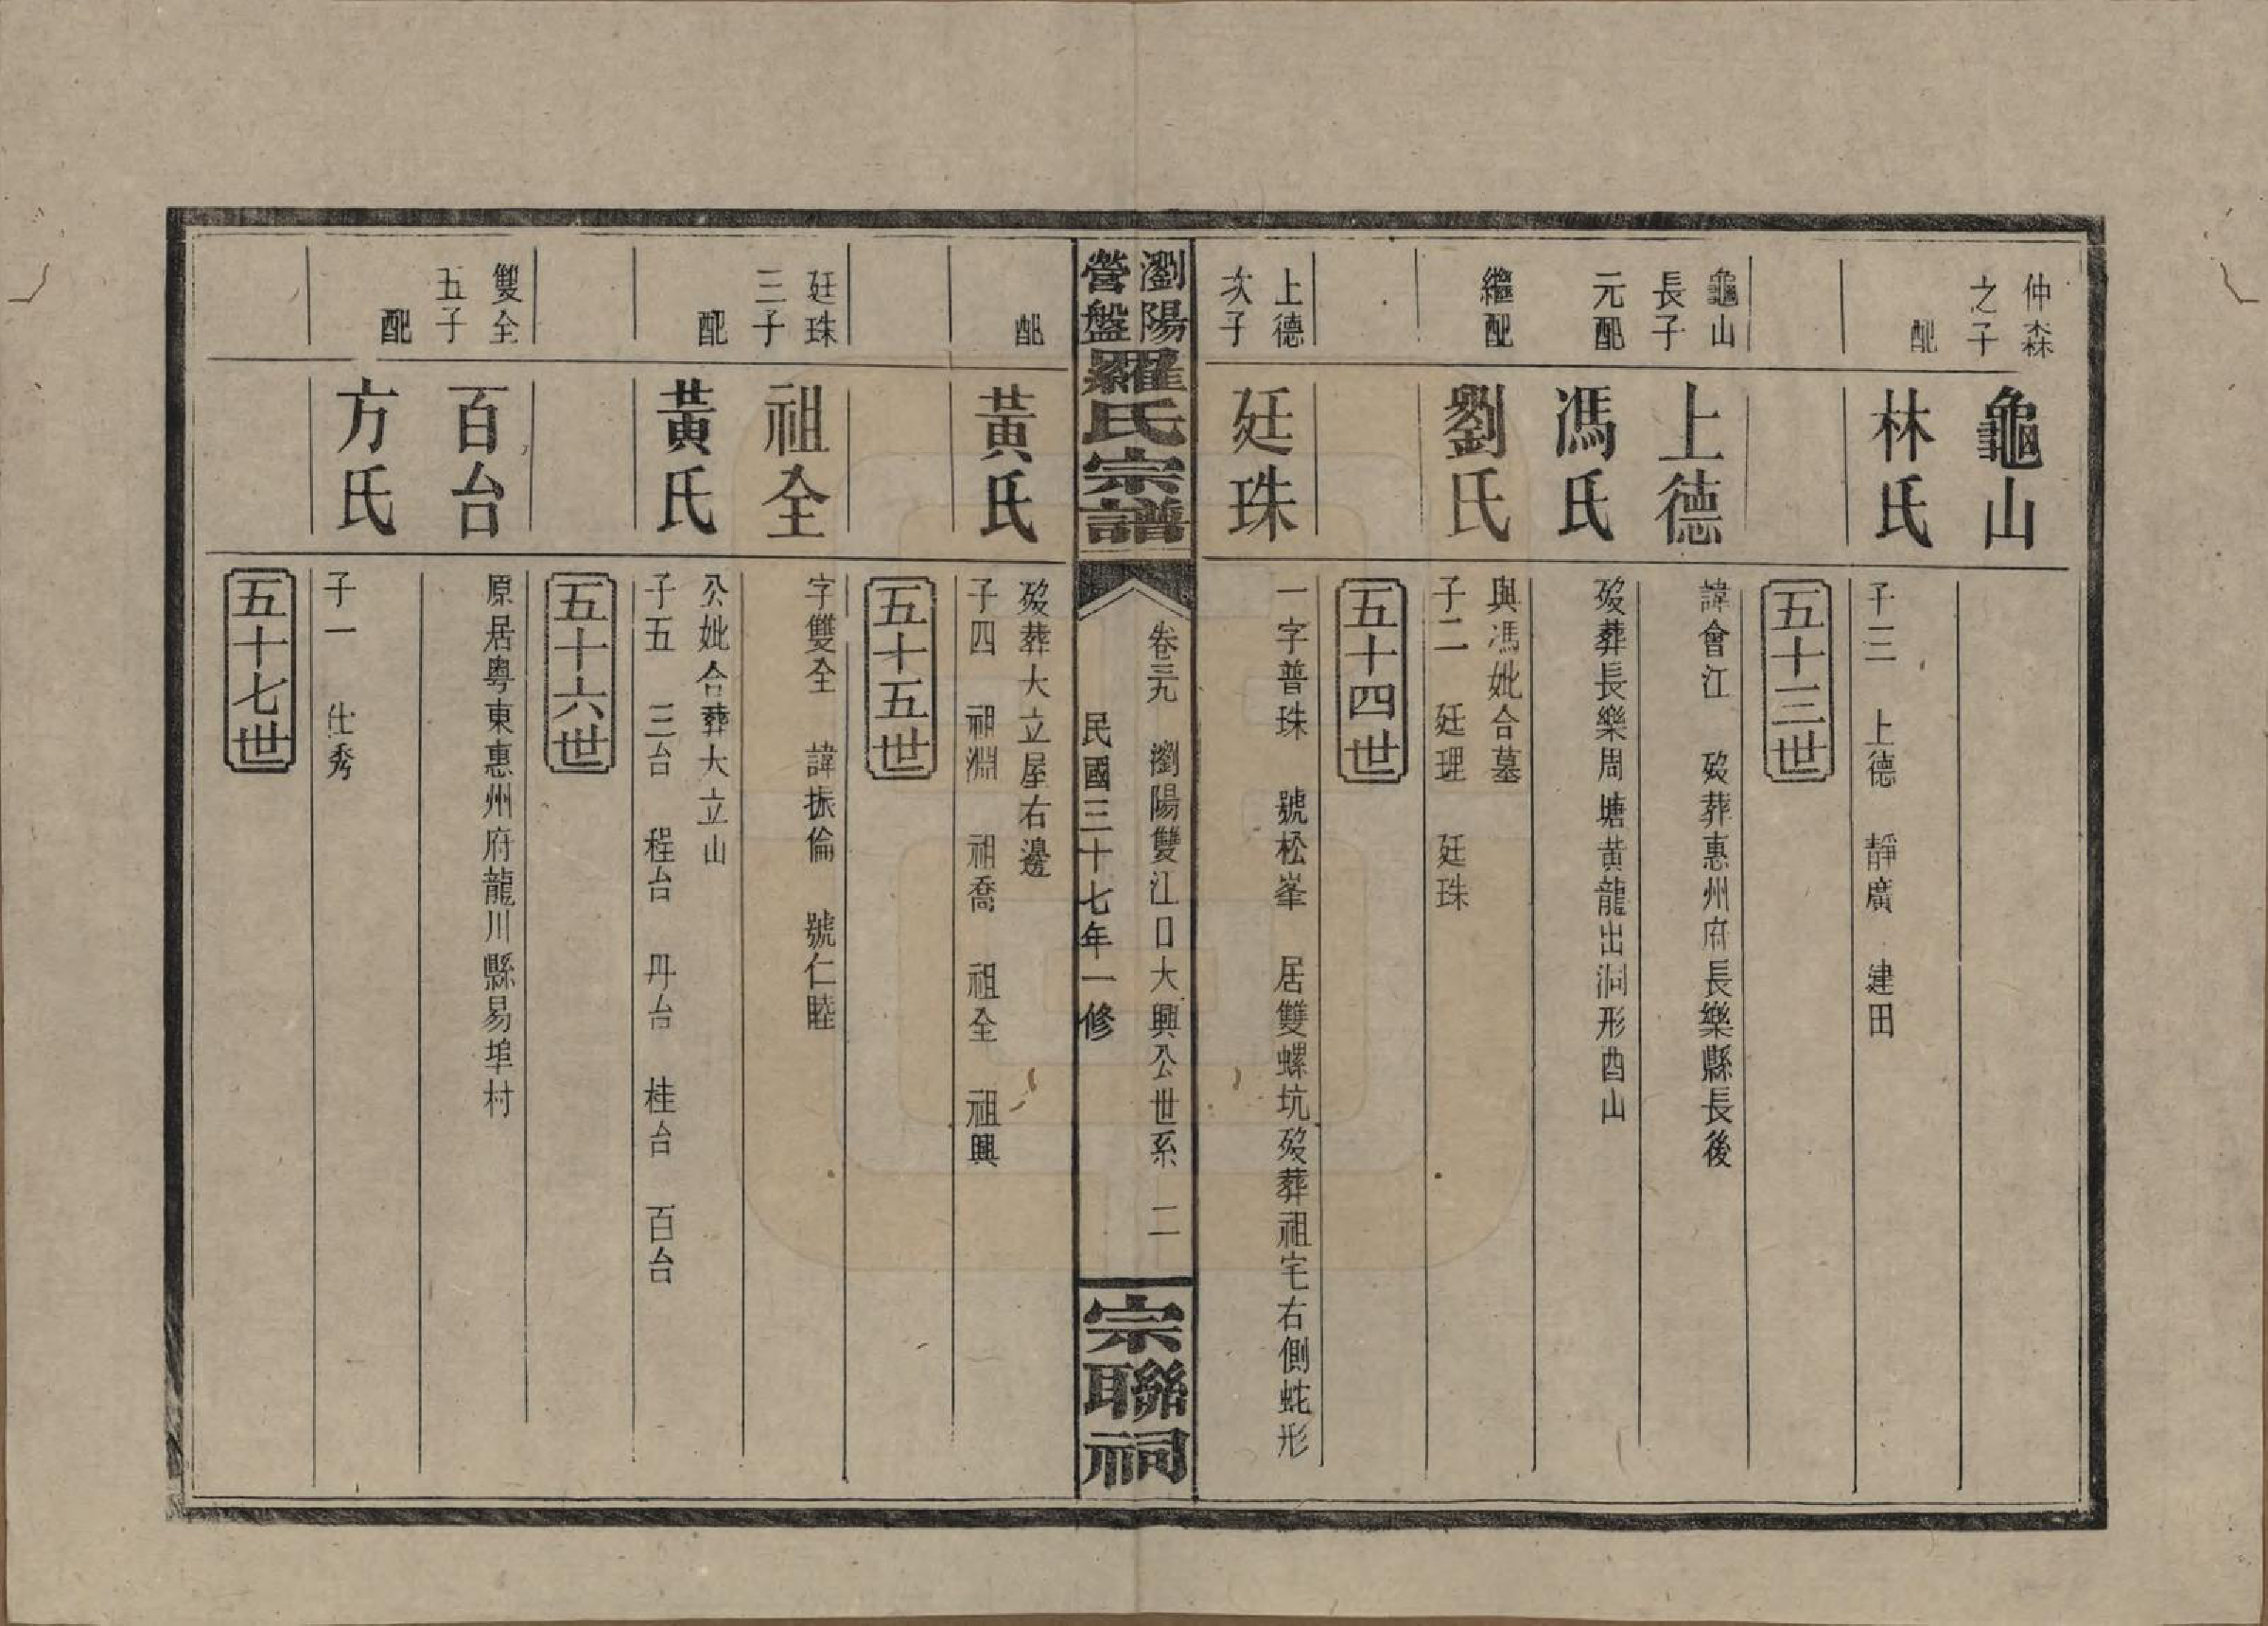 仲森
之子
龜山
配
林氏
子三　上德　靜廣　建田
五十三世
龜山
長子
上德
諱會江　歿葬惠州府長樂縣長後
元配
馮氏
歿葬長樂周塘黄龍出洞形酉山
繼配
劉氏
與馮妣合墓
子二　廷理　廷珠
五十四世
上德
次子
廷珠
一字普珠　號松峯　居雙螺坑歿葬祖宅右側虵形
瀏陽
營盤
羅氏宗譜
卷三九　瀏陽雙江口大興公世系　二
民國三十七年一修
宗聯祠
配
黃氏
歿葬大立屋右邊
子四　祖淵　祖喬　祖全　祖興
五十五世
廷珠
三子
祖全
字雙全　諱振倫　號仁睦
配
黃氏
公妣合葬大立山
子五　三台　程台　丹台　桂台　百台
五十六世
雙全
五子
百台
原居粤東惠州府龍川縣易埠村
配
方氏
子一　仕秀
五十七世